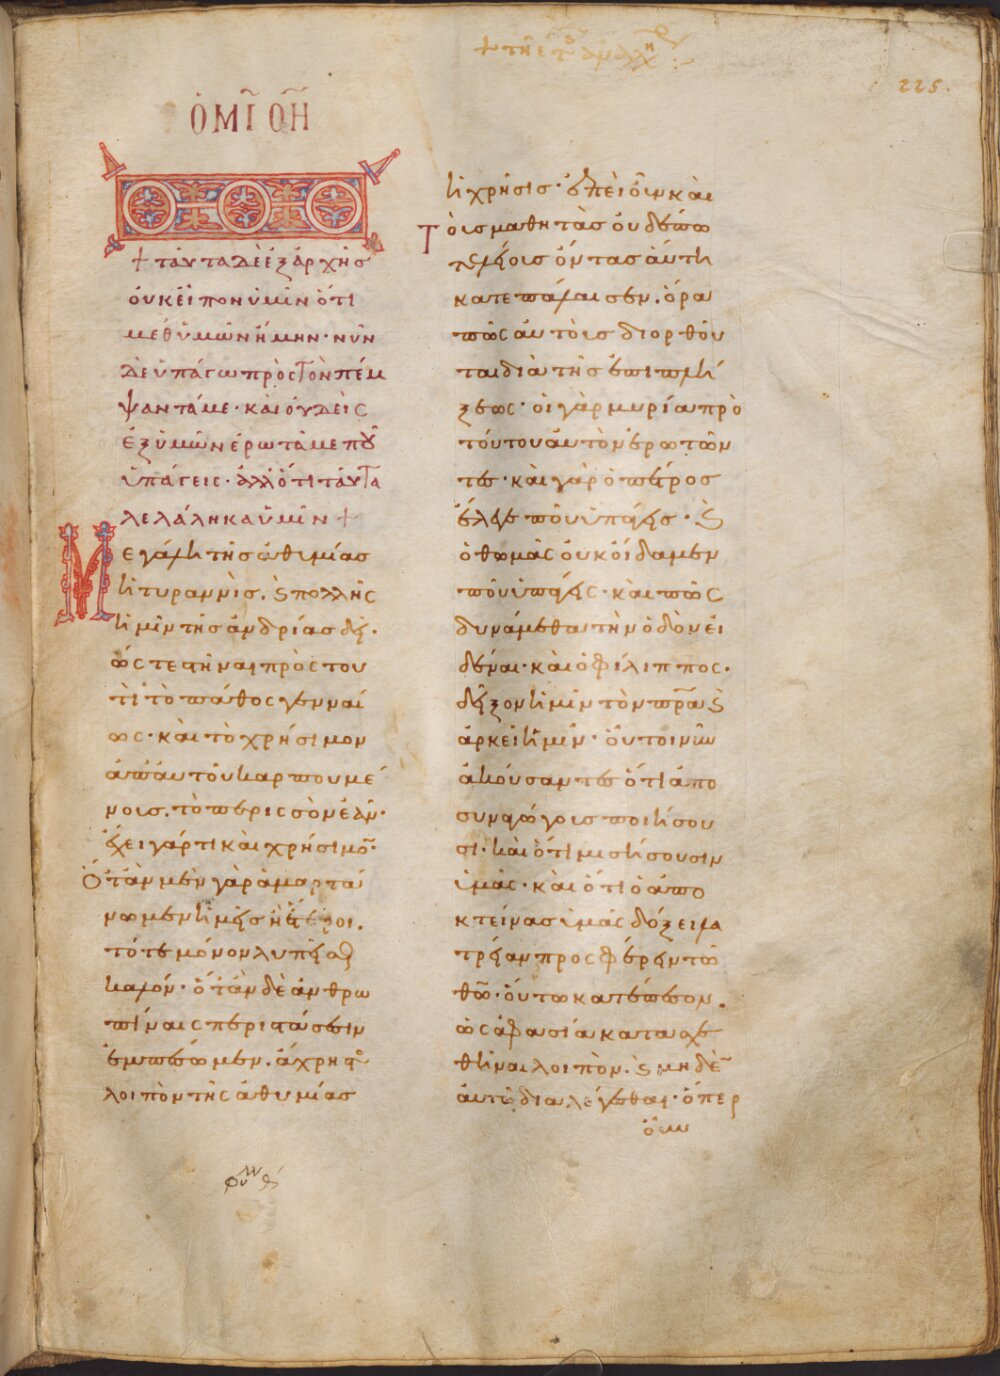 225.
ὉΜΙ ΟΗ
+ ταῦτα δὲ ἐξ ἀρχῆς
οὐκ εἶπον ὑμῖν ὅτι
μεθ' ὑμῶν ἤμην· νῦν
δὲ ὑπάγω πρὸς τὸν πέμ
ψαντά με· καὶ οὐδεὶς
ἐξ ὑμῶν ἐρωτᾶ με ποῦ
ὑπάγεις· ἀλλ' ὅτι ταῦτα
λελάληκα ὑμῖν +
Μεγάλη τῆς ἀθυμίας
ἡ τυραννὶς. ϗ πολλῆς
ἡμῖν τῆς ἀνδρίας δεῖ·
ὥςτε στῆναι πρὸς τοῦ
τι τὸ πάθος γενναί
ως· καὶ τὸ χρήσιμον
ἀπ' αὐτοῦ καρπουμέ
νοις. τὸ περισσὸν ἐᾶν·
ἔχει γάρ τι καὶ χρήσιμον·
Ὅταν μὲν γὰρ ἁμαρτά
νωμεν ἡμεῖς ἢ ἕτεροι.
τότε μόνον λυπεῖσθαι
καλόν· ὅταν δὲ ἀνθρω
πίναις περιστάσεσιν
ἐμπέσωμεν. ἄχρηστος
λοιπὸν τῆς ἀθυμίας
ἡ χρῆσις· ἐπεὶ οὖν καὶ
τοῖς μαθητὰς οὐδέπω
τελείοις ὄντας αὕτη
κατεπάλαισεν. ὅρα
πῶς αὐτοῖς διορθοῦ
ται διὰ τῆς ἐπιπλή
ξεως· οἱ γὰρ μυρία πρὸ
τούτου αὐτὸν ἐρωτῶν
τες· καὶ γὰρ ὁ πέτρος
ἔλεγε ποῦ ὑπάγεις· ϗ
ὁ θωμᾶς οὐκ οἴδαμεν
ποῦ ὑπάγεις· καὶ πῶς
δυνάμεθα τὴν ὁδὸν εἰ
δέναι· καὶ ὁ φίλιππος·
δεῖξον ἡμῖν τὸν πρα ϗ
ἀρκεῖ ἡμῖν· οὗτοι νῦν
ἀκούσαντες ὅτι ἀπο
συναγώγοις ποιήσου
σι· καὶ ὅτι μισήσουσιν
ὑμᾶς· καὶ ὅτι ὁ ἀπο
κτείνας ὑμᾶς δόξει λα
τρείαν προςφέρειν τῶ
θω· οὕτω κατέπεσον.
ὡς ἀφασία κατασχε
θῆναι λοιπὸν. ϗ μηδὲν
αὐτῶ διαλέγεσθαι· ὅπερ
οὖν